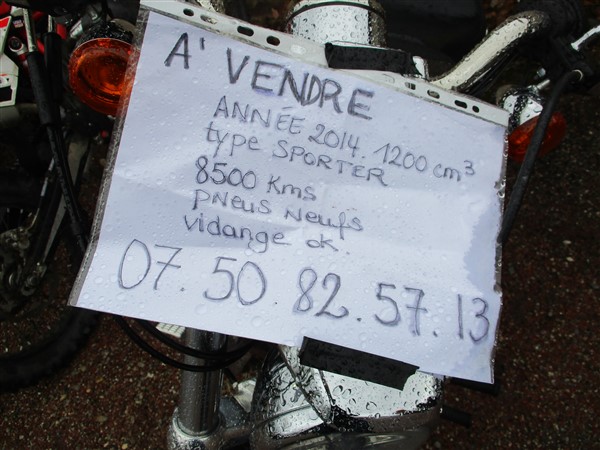 A' VENDRE
ANNÉE 2014. 1200 cm³
type SPORTER
8500 Kms
pneus neufs
vidange ok.
07. 50 82. 57. 13